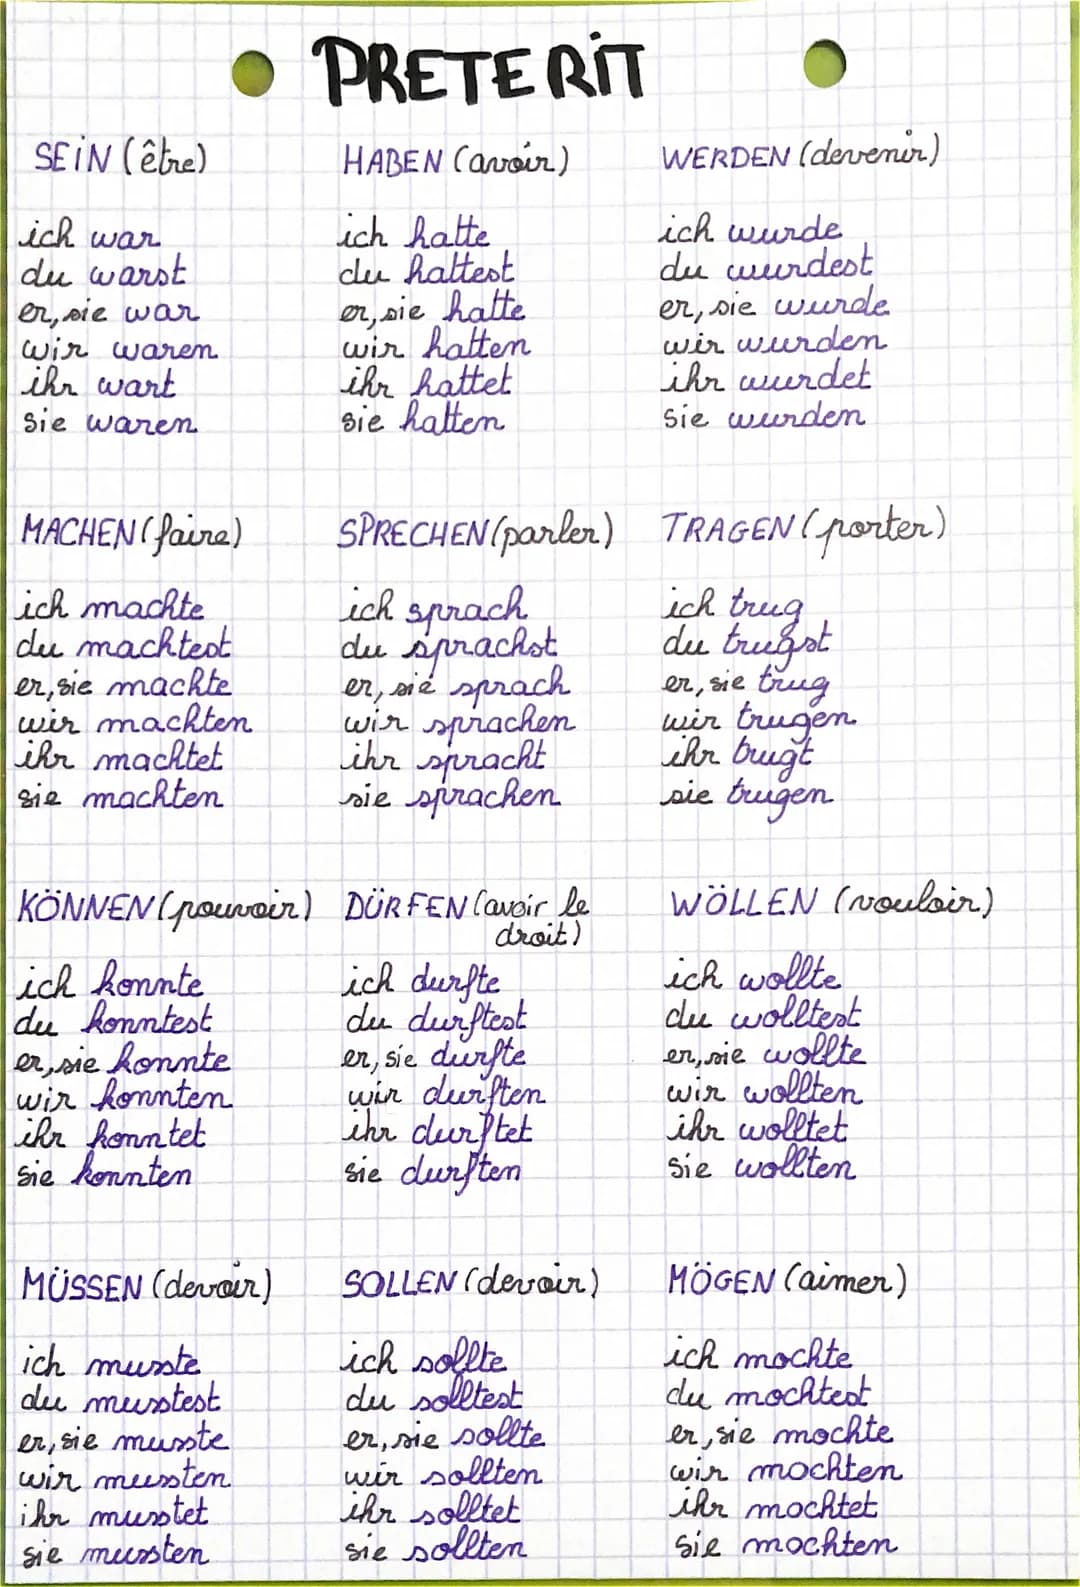 PRETERIT
SEIN (être)
ich war
du warst
er, sie war
wir waren
ihr wart
sie waren
HABEN (avoir)
ich hatte
du hattest
er, sie hatte
wir hatten
ihr hattet
sie hatten
WERDEN (devenir)
ich wurde
du wurdest
er, sie wurde
wir wurden
ihr wurdet
sie wurden
MACHEN (faire)
ich machte
du machtest
er, sie machte
wir machten
ihr machtet
sie machten
SPRECHEN (parler)
ich sprach
du sprachst
er, sie sprach
wir sprachen
ihr spracht
sie sprachen
TRAGEN (porter)
ich trug
du trugst
er, sie trug
wir trugen
ihr trugt
sie trugen
KÖNNEN (pouvoir)
ich konnte
du konntest
er, sie konnte
wir konnten
ihr konntet
sie konnten
DÜRFEN (avoir le
droit)
ich durfte
du durftest
er, sie durfte
wir durften
ihr durftet
sie durften
WÖLLEN (vouloir)
ich wollte
du wolltest
er, sie wollte
wir wollten
ihr wolltet
sie wollten
MÜSSEN (devoir)
ich musste
du musstest
er, sie musste
wir mussten
ihr musstet
sie mussten
SOLLEN (devoir)
ich sollte
du solltest
er, sie sollte
wir sollten
ihr solltet
sie sollten
MÖGEN (aimer)
ich mochte
du mochtest
er, sie mochte
wir mochten
ihr mochtet
sie mochten